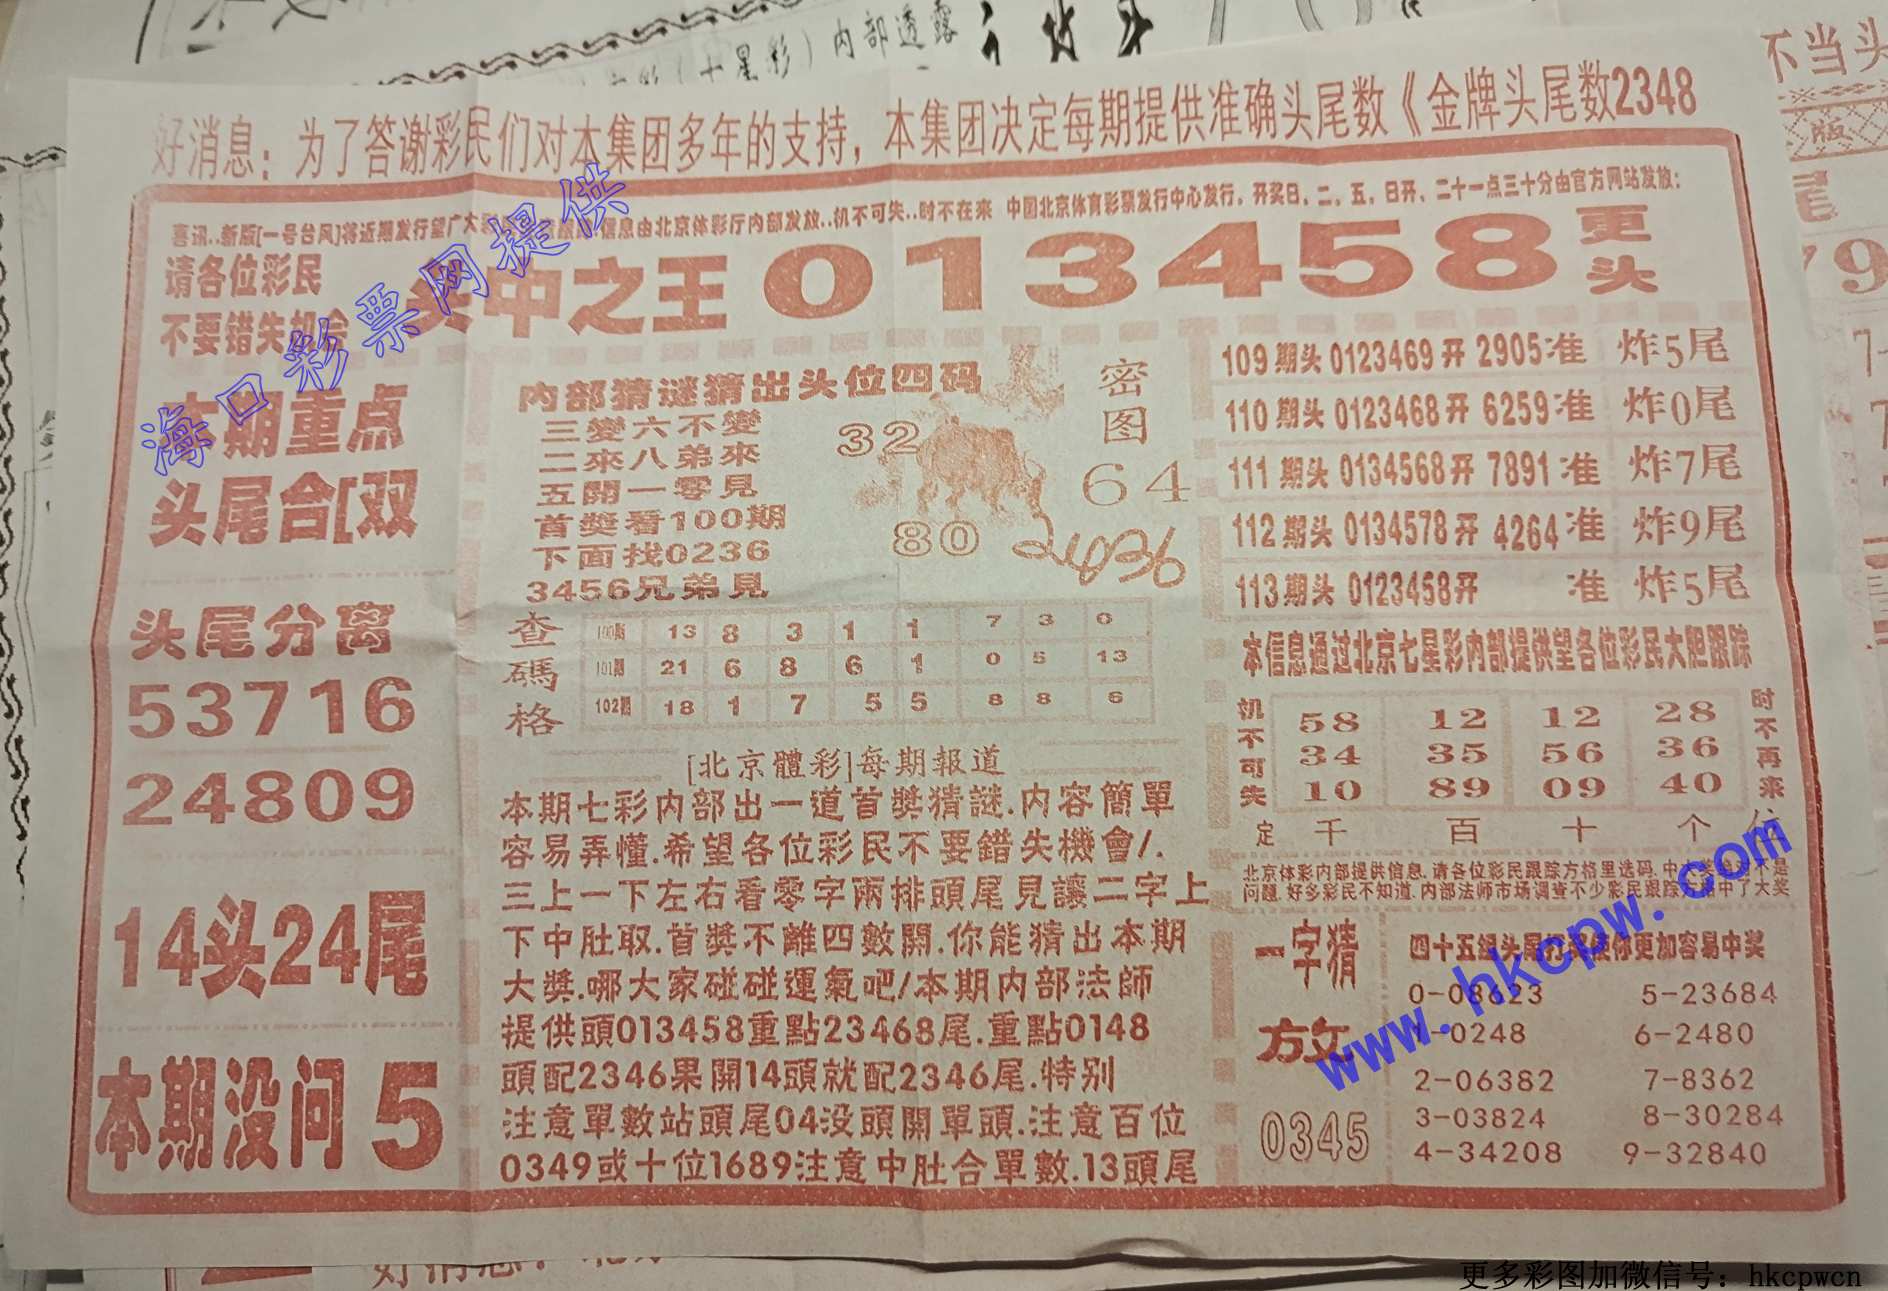 内部透露
不当头
版
好消息：为了答谢彩民们对本集团多年的支持，本集团决定每期提供准确头尾数《金牌头尾数2348
喜讯..新版[一号台风]将近期发行望广大 信息由北京体彩厅内部发放..机不可失..时不在来 中国北京体育彩票发行中心发行，开奖日、二、五、日开、二十一点三十分由官方网站发放：
请各位彩民
不要错失机会
头中之王 013458 更头
本期重点
头尾合[双
头尾分离
53716
24809
14头24尾
本期没问 5
内部猜谜猜出头位四码
三變六不變
二來八弟來
五開一零見
首獎看100期
下面找0236
3456兄弟見
密图
32
64
80
查碼格
100期 13 8 3 1 1 7 3 0
101期 21 6 8 6 1 0 5 13
102期 18 1 7 5 5 8 8 6
[北京體彩]每期報道
本期七彩内部出一道首獎猜謎.内容簡單
容易弄懂.希望各位彩民不要錯失機會/.
三上一下左右看零字兩排頭尾見讓二字上
下中肚取.首獎不離四數開.你能猜出本期
大獎.哪大家碰碰運氣吧/本期内部法師
提供頭013458重點23468尾.重點0148
頭配2346果開14頭就配2346尾.特别
注意單數站頭尾04没頭開單頭.注意百位
0349或十位1689注意中肚合單數.13頭尾
109期头 0123469开 2905准 炸5尾
110期头 0123468开 6259准 炸0尾
111期头 0134568开 7891准 炸7尾
112期头 0134578开 4264准 炸9尾
113期头 0123458开 准 炸5尾
本信息通过北京七星彩内部提供望各位彩民大胆跟踪
机不可失
58 12 12 28
34 35 56 36
10 89 09 40
时不再来
定 千 百 十 个 位
北京体彩内部提供信息.请各位彩民跟踪方格里选码.中大奖绝对不是
问题.好多彩民不知道.内部法师市场调查不少彩民跟踪 中了大奖
一字猜
放
0345
四十五组头尾 你更加容易中奖
0-03623 5-23684
1-0248 6-2480
2-06382 7-8362
3-03824 8-30284
4-34208 9-32840
海口彩票网提供
www.hkcpw.com
好消息：
更多彩图加微信号：hkcpwcn